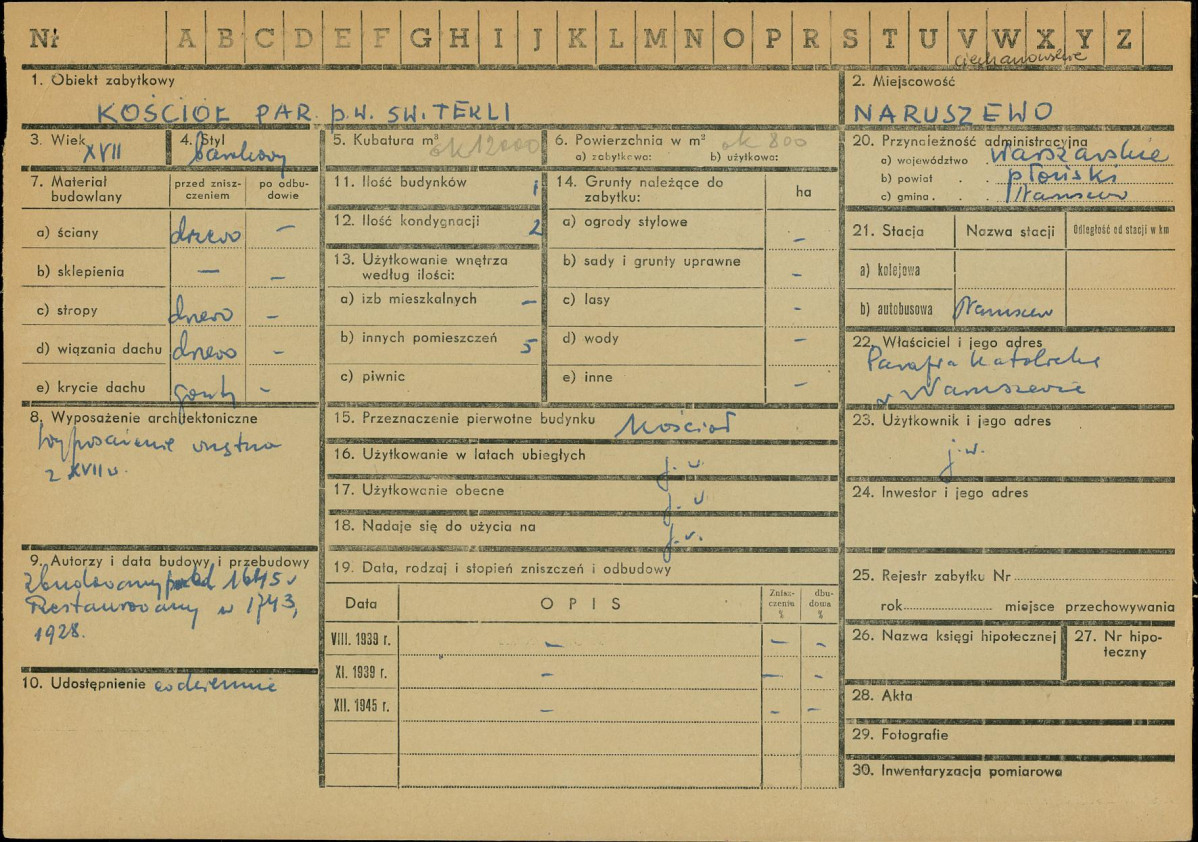 Nr A B C D E F G H I J K L M N O P R S T U V W X Y Z
ciechanowskie
1. Obiekt zabytkowy
KOŚCIÓŁ PAR. p.w. ŚW. TEKLI
2. Miejscowość
NARUSZEWO
3. Wiek XVII
4. Styl barokowy
5. Kubatura m³ ok 12000
6. Powierzchnia w m² ok 800
a) zabytkowa: b) użytkowa:
7. Materiał budowlany
przed zniszczeniem
po odbudowie
a) ściany drzewo –
b) sklepienia — –
c) stropy drzewo –
d) wiązania dachu drzewo –
e) krycie dachu gonty –
8. Wyposażenie architektoniczne
Wyposażenie wnętrza
z XVII w.
9. Autorzy i data budowy i przebudowy
Zbudowany przed 1645 r
Restaurowany w 1743,
1928.
10. Udostępnienie codziennie
11. Ilość budynków 1
12. Ilość kondygnacji 2
13. Użytkowanie wnętrza
według ilości:
a) izb mieszkalnych –
b) innych pomieszczeń 5
c) piwnic
14. Grunty należące do
zabytku:
ha
a) ogrody stylowe –
b) sady i grunty uprawne –
c) lasy –
d) wody –
e) inne –
15. Przeznaczenie pierwotne budynku Kościół
16. Użytkowanie w latach ubiegłych j. w.
17. Użytkowanie obecne j. w
18. Nadaje się do użycia na j. w.
19. Data, rodzaj i stopień zniszczeń i odbudowy
Data OPIS Zniszczenia % dbudowa %
VIII. 1939 r. – – –
XI. 1939 r. – – –
XII. 1945 r. – – –
20. Przynależność administracyjna
a) województwo Warszawskie
b) powiat . . płoński
c) gmina . . . Naruszewo
21. Stacja Nazwa stacji Odległość od stacji w km
a) kolejowa
b) autobusowa Naruszewo
22. Właściciel i jego adres
Parafia Katolicka
w Naruszewie
23. Użytkownik i jego adres
j. w.
24. Inwestor i jego adres
25. Rejestr zabytku Nr
rok miejsce przechowywania
26. Nazwa księgi hipotecznej
27. Nr hipoteczny
28. Akta
29. Fotografie
30. Inwentaryzacja pomiarowa